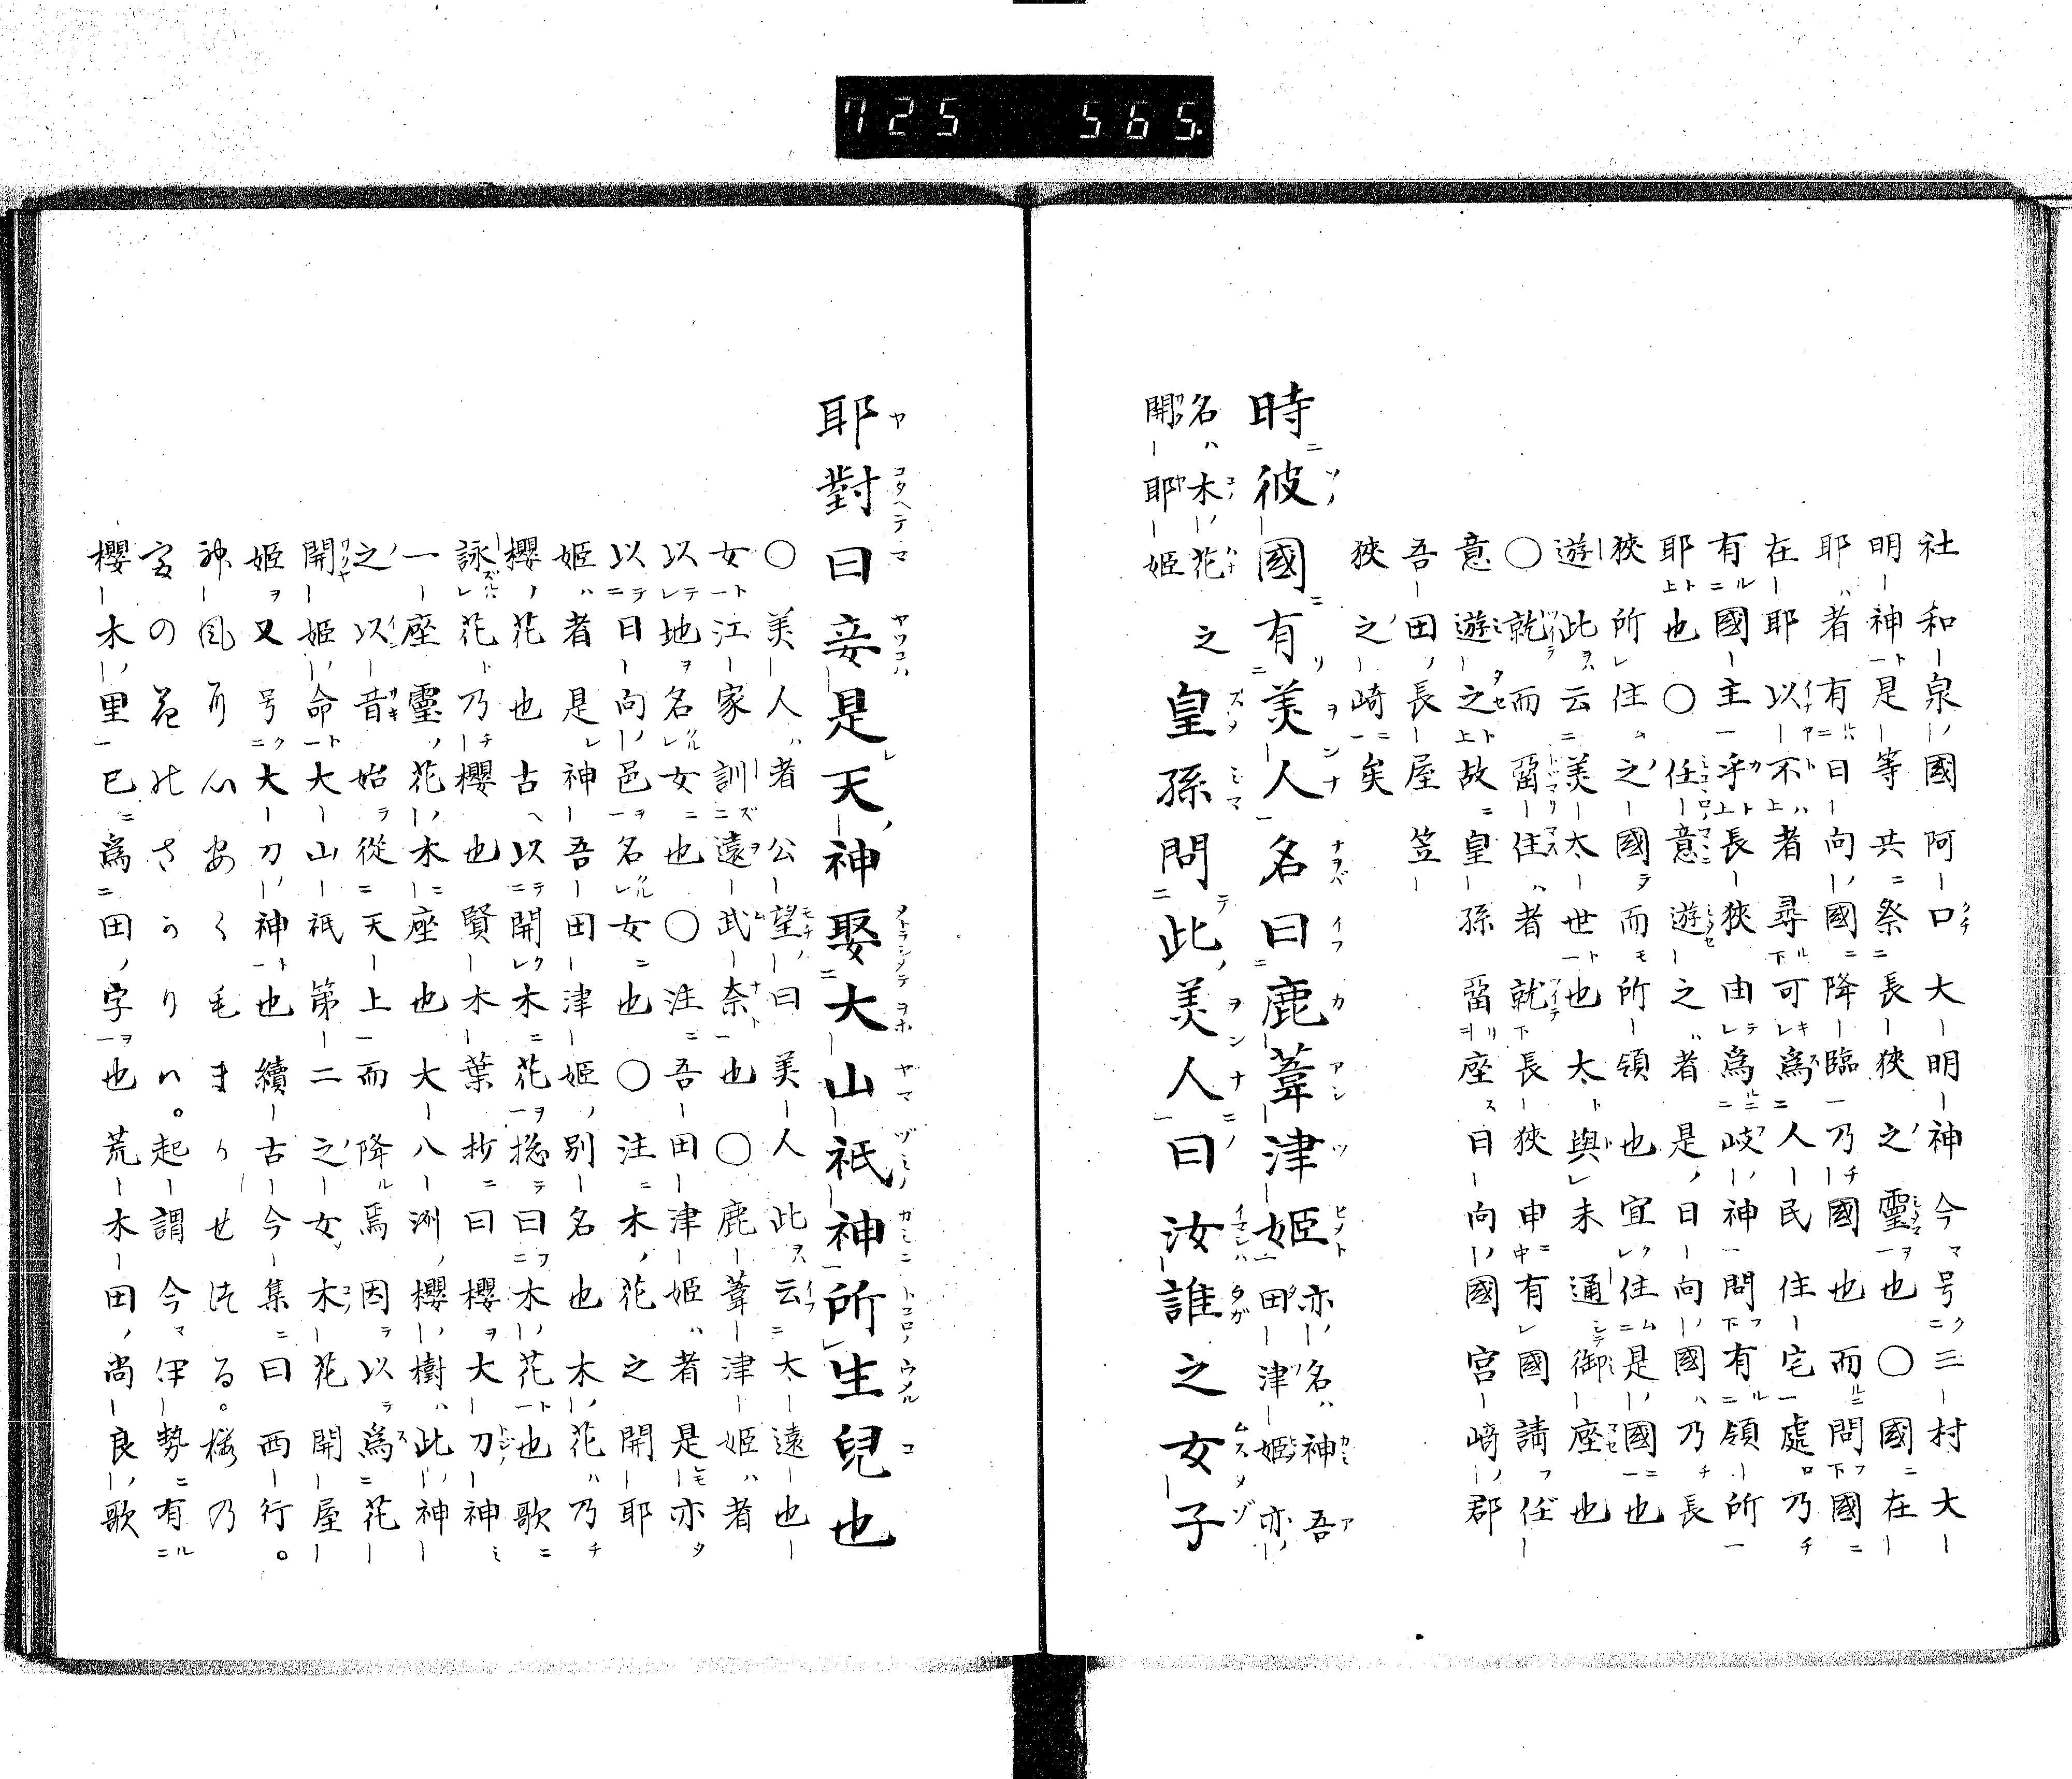 725 565.
社和泉國阿口大明神今号三村大
明神是等共祭長狹之靈也〇國在
耶者有日向國降臨乃國也而問國
在耶以不者尋可爲人民住宅處乃
有國主乎長狹由爲岐神問有領所
耶也〇任意遊之者是日向國乃長
狹所住之國而所領也宜住是國也
遊此云美太世也太與未通御座也
〇就而留住者就長狹申有國請任
意遊之故皇孫留座日向國宮﨑郡
吾田長屋笠
狹之崎矣
時彼國有美人名曰鹿葦津姬亦名神吾田津姬亦
名木花開耶姬之皇孫問此美人曰汝誰之女子
耶對曰妾是天神娶大山祇神所生兒也
〇美人者公望曰美人此云太遠也
女江家訓遠武奈也〇鹿葦津姬者
以地名女也〇注吾田津姬者是亦
以日向邑名女也〇注木花之開耶
姬者是神吾田津姬別名也木花乃
櫻花也古以開木花揔曰木花也歌
詠花乃櫻也賢木葉抄曰櫻大刀神
一座靈花木座也大八洲櫻樹此神
之以昔始從天上而降焉因以爲花
開姬命大山祇第二之女木花開屋
姬又号大刀神也續古今集曰西行。
神風に心やすくそまかせつる。櫻の
宮の花のさかりは。起謂今伊勢有
櫻木里已爲田字也荒木田尚良歌